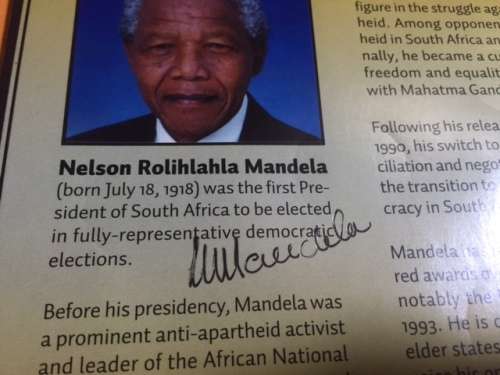 Nelson Rolihlahla Mandela
(born July 18, 1918) was the first Pre-
sident of South Africa to be elected
in fully-representative democratic
elections.
Mandela
Before his presidency, Mandela was
a prominent anti-apartheid activist
and leader of the African National
figure in the struggle
heid. Among
heid in South Africa
nally, he became a
freedom and
with Mahatma
Following his
1990, his switch to
ciliation and
the transition to
cracy in South
Mandela
red awards
notably the
1993. He is
elder